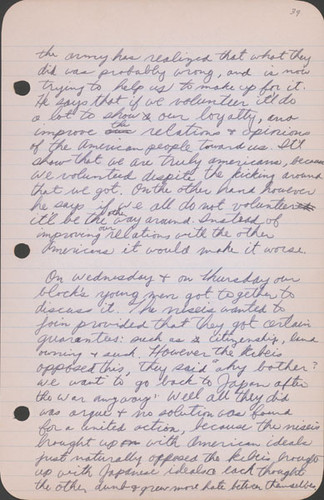 39.
the army has realized that what they
did was probably wrong, and is now
trying to help us to make up for it.
He says that if we volunteer it'll do
a lot to show our loyalty, and
improve the relations & opinions
of the American people toward us. It'll
show that we are truly americans, because
we volunteed despite the kicking around
that we got. On the other hand however
he says if we all do not volunteer
it'll be the other way around. Instead of
improving our relations with the other
Americans it would make it worse.
On Wednesday & on Thursday our
block's young men got together to
discuss it. The niseis wanted to
join provided that they got certain
guaranties: such as citizenship, land
owning & such. However the kibeis
opposed this, they said "why bother?
we want to go back to Japan after
the war anyway." Well all they did
was argue & no solution was found
for a united action, because the niseis
brought up with American ideals
just naturally opposed the kibeis brought
up with Japanese ideals each thought
the other dumb & grew more hate between themselves